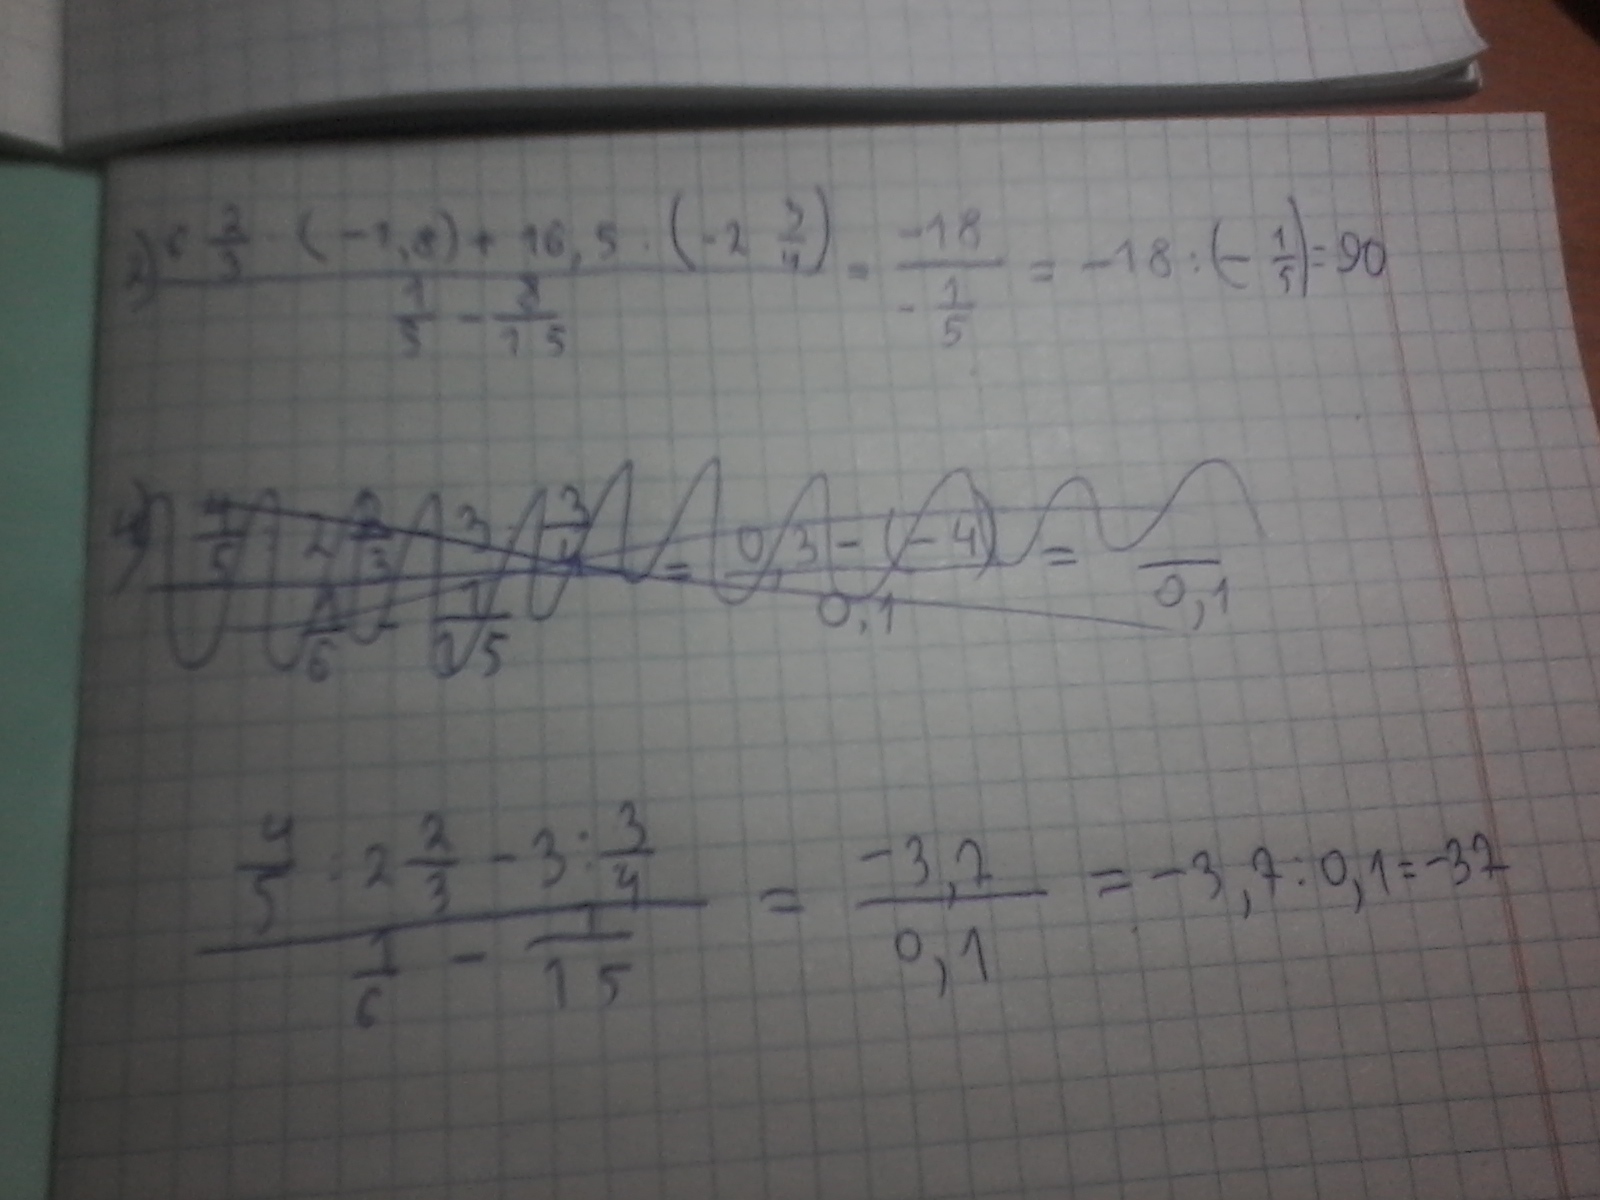 2) (6 2/3 · (-1,8) + 16,5 : (-2 3/4)) / (1/3 - 8/15) = -18 / (-1/5) = -18 : (-1/5) = 90
4) (4/5 : 2 2/3 - 3 : 3/4) / (1/6 - 1/15) = (0,3 - (-4)) / 0,1 = / 0,1
(4/5 : 2 2/3 - 3 : 3/4) / (1/6 - 1/15) = -3,7 / 0,1 = -3,7 : 0,1 = -37